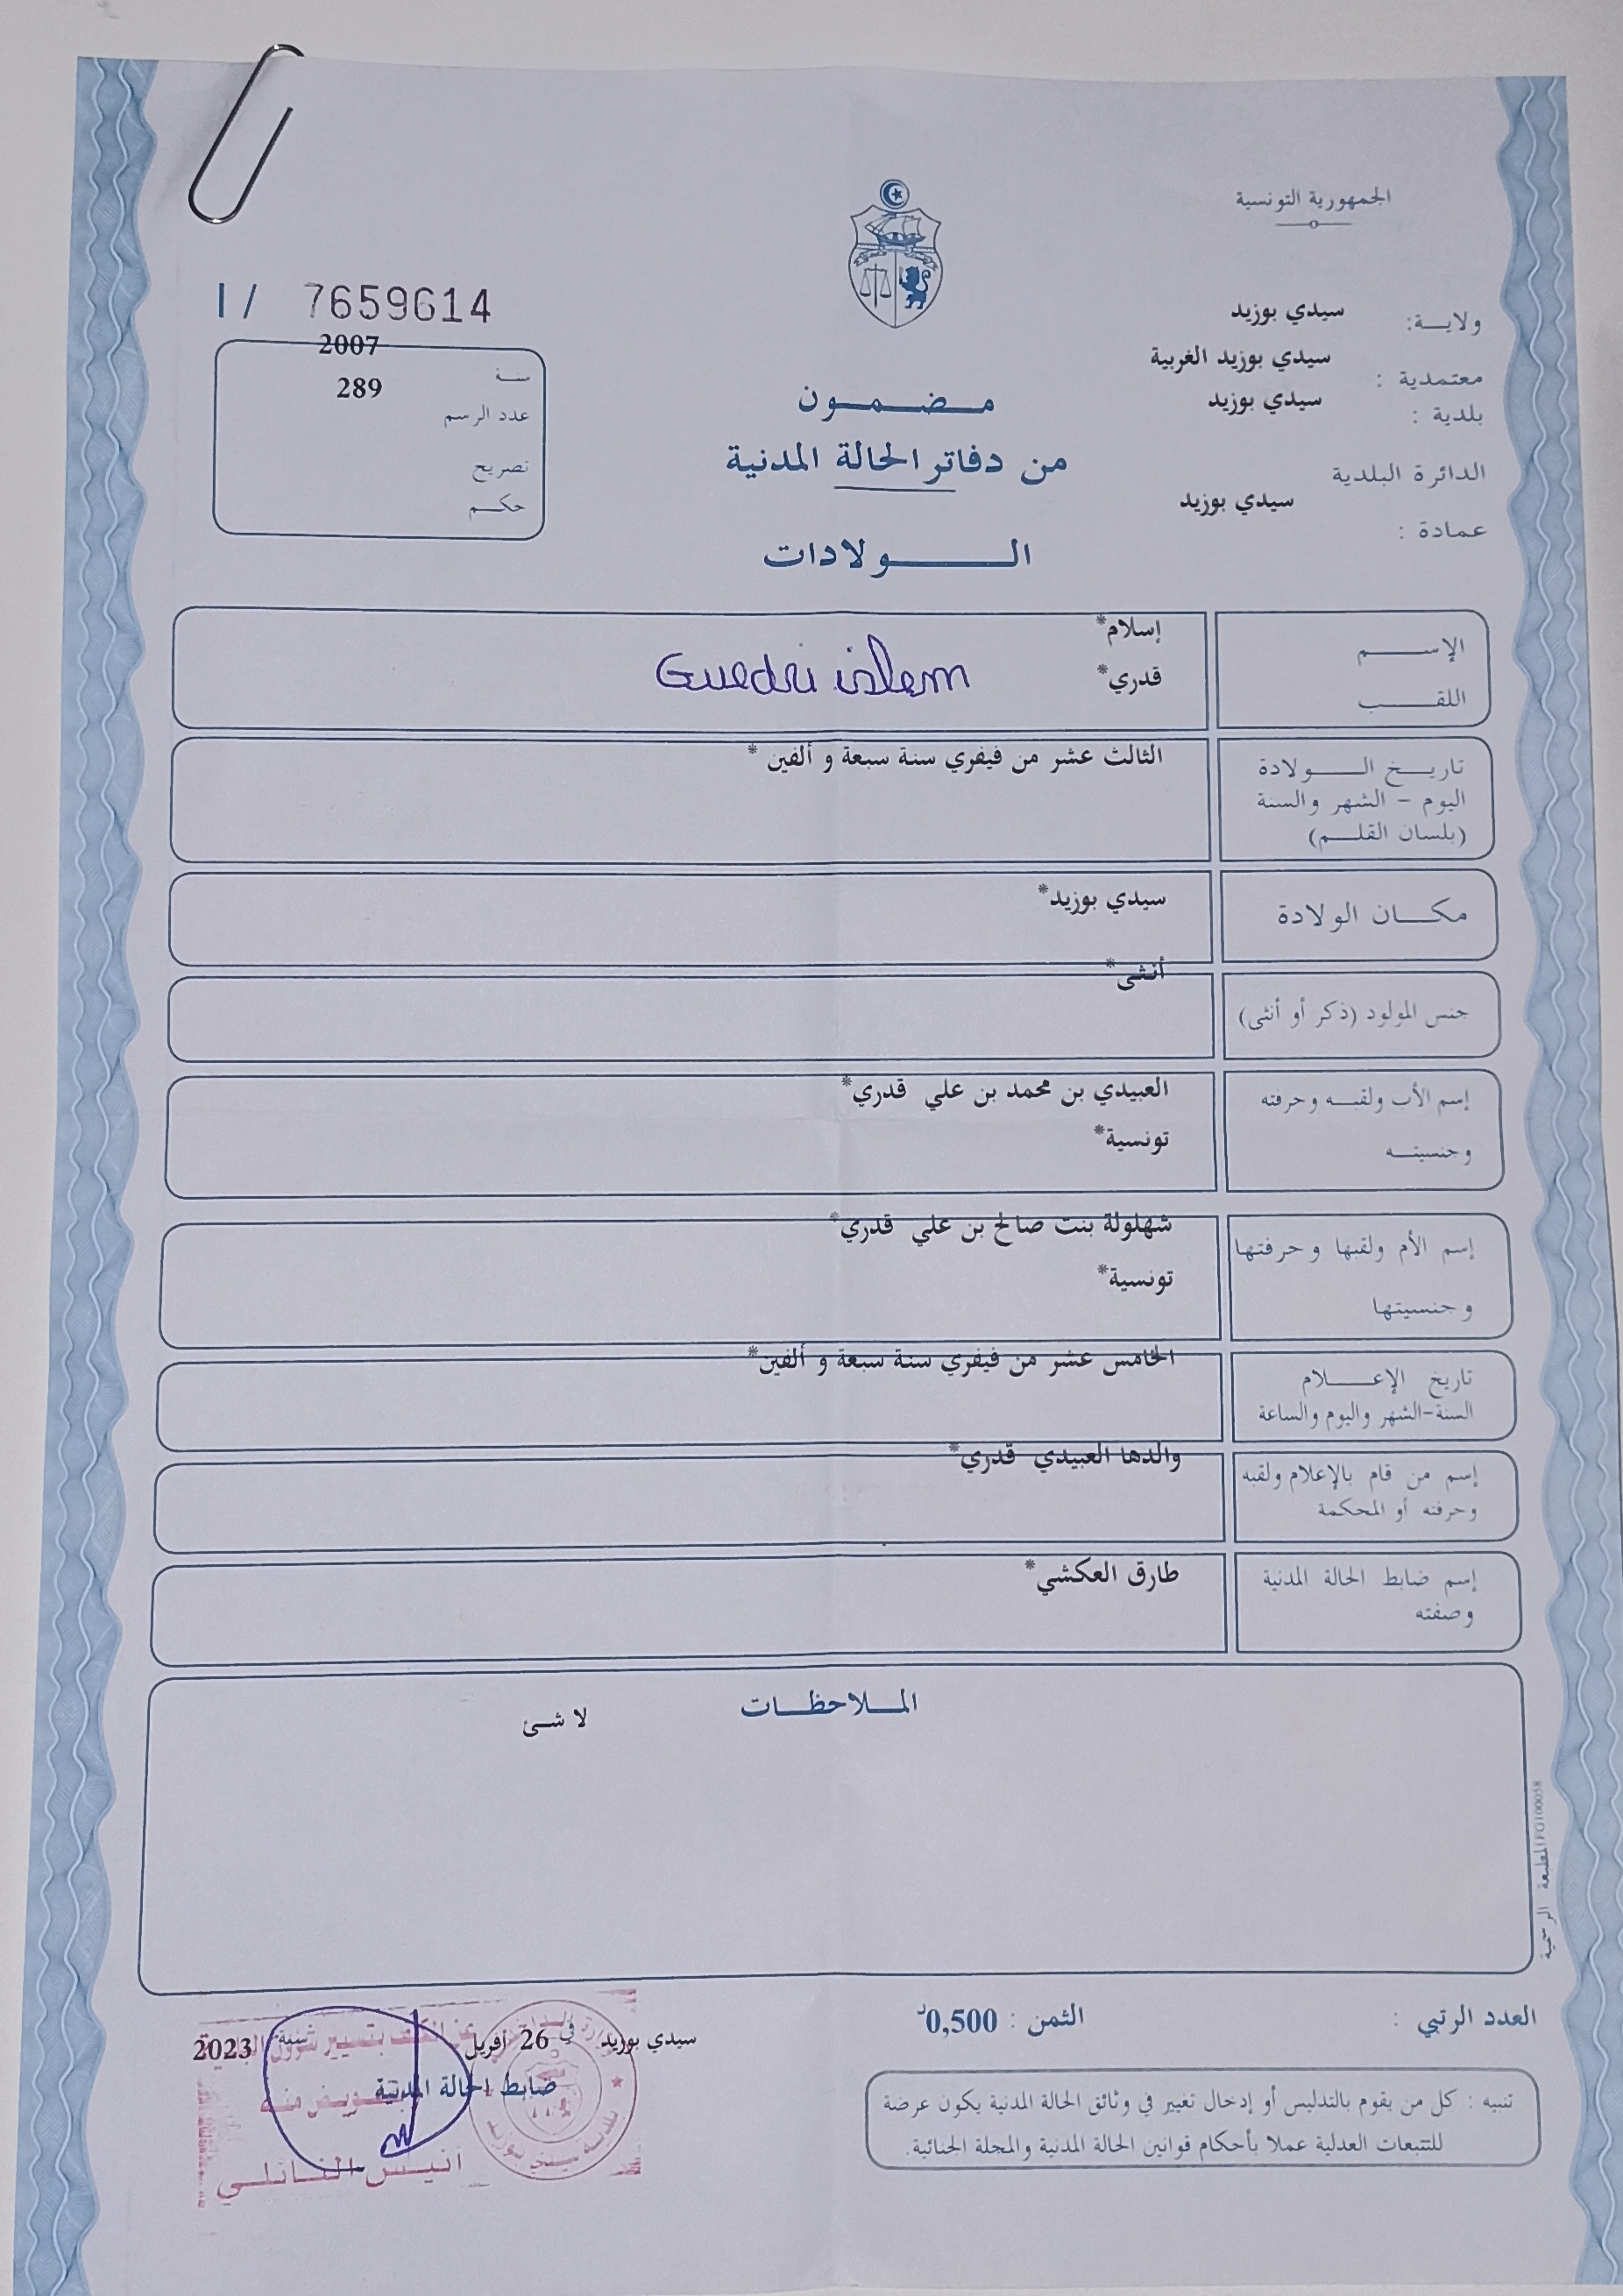 الجمهورية التونسية
ولاية: سيدي بوزيد
معتمدية : سيدي بوزيد الغربية
بلدية : سيدي بوزيد
الدائرة البلدية
سيدي بوزيد
عمادة :
مضمون
من دفاتر الحالة المدنية
الولادات
I / 7659614
سنة 2007
عدد الرسم 289
تصريح
حكم
الإسم إسلام*
اللقب قدري*
Guedri islem
تاريخ الولادة
اليوم - الشهر والسنة
(بلسان القلم)
الثالث عشر من فيفري سنة سبعة و ألفين *
مكان الولادة
سيدي بوزيد*
جنس المولود (ذكر أو أنثى)
أنثى*
إسم الأب ولقبه وحرفته
وجنسيته
العبيدي بن محمد بن علي قدري*
تونسية*
إسم الأم ولقبها وحرفتها
وجنسيتها
شهلولة بنت صالح بن علي قدري*
تونسية*
تاريخ الإعلام
السنة-الشهر واليوم والساعة
الخامس عشر من فيفري سنة سبعة و ألفين*
إسم من قام بالإعلام ولقبه
وحرفته أو المحكمة
والدها العبيدي قدري*
إسم ضابط الحالة المدنية
وصفته
طارق العكشي*
الملاحظات
لا شئ
المطبعة الرسمية
العدد الرتبي :
الثمن : 0,500د
تنبيه : كل من يقوم بالتدليس أو إدخال تغيير في وثائق الحالة المدنية يكون عرضة
للتتبعات العدلية عملا بأحكام قوانين الحالة المدنية والمجلة الجنائية.
سيدي بوزيد في 26 أفريل سنة 2023
ضابط الحالة المدنية
بلدية سيدي بوزيد